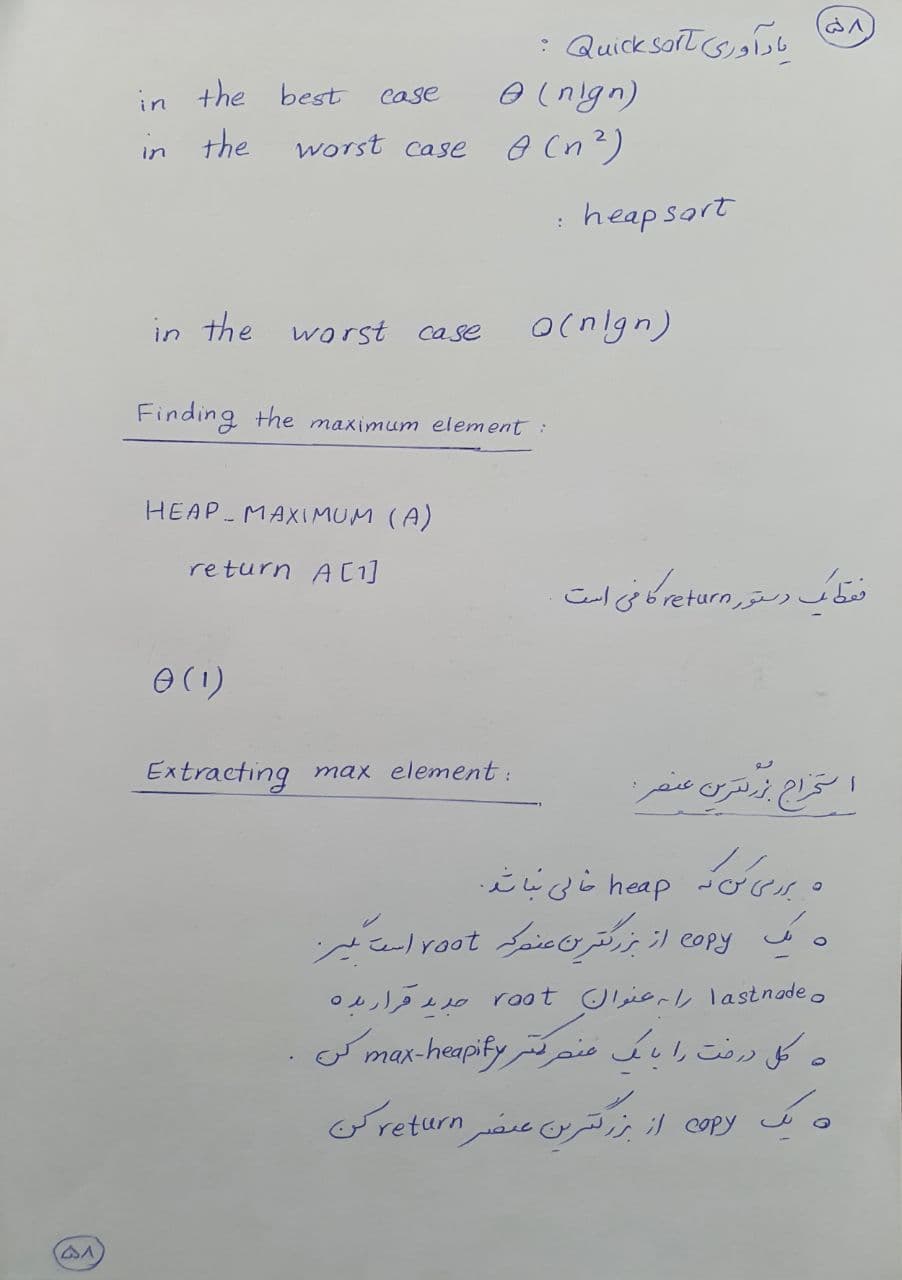 ۵۸
یادآوری Quicksort :
in the best case θ(nlgn)
in the worst case θ(n²)
heapsort :
in the worst case O(nlgn)
Finding the maximum element :
HEAP_MAXIMUM (A)
return A[1]
فقط یک دستور return کافی است .
θ(1)
Extracting max element :
استخراج بزرگترین عنصر :
○ بررسی کن که heap خالی نباشد.
○ یک copy از بزرگترین عنصر که root است بگیر .
○ lastnode را به عنوان root جدید قرار بده
○ کل درخت را با یک عنصر کمتر max-heapify کن .
○ یک copy از بزرگترین عنصر return کن
۵۸